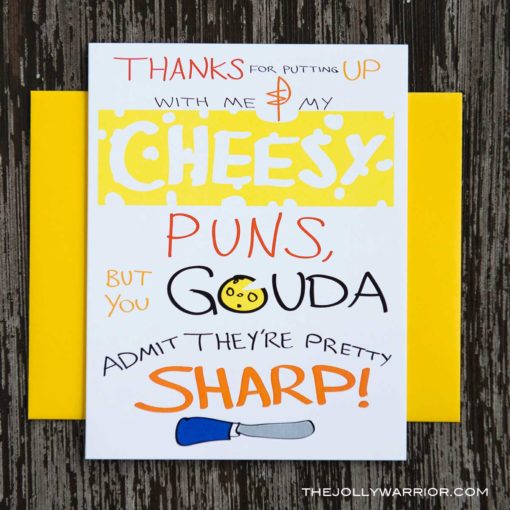 THANKS FOR PUTTING UP
WITH ME & MY
CHEESY
PUNS,
BUT YOU GOUDA
ADMIT THEY'RE PRETTY
SHARP!
THEJOLLYWARRIOR.COM